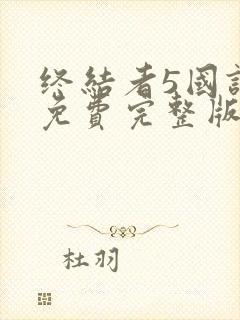 终結者5國
免費完整版
杜羽